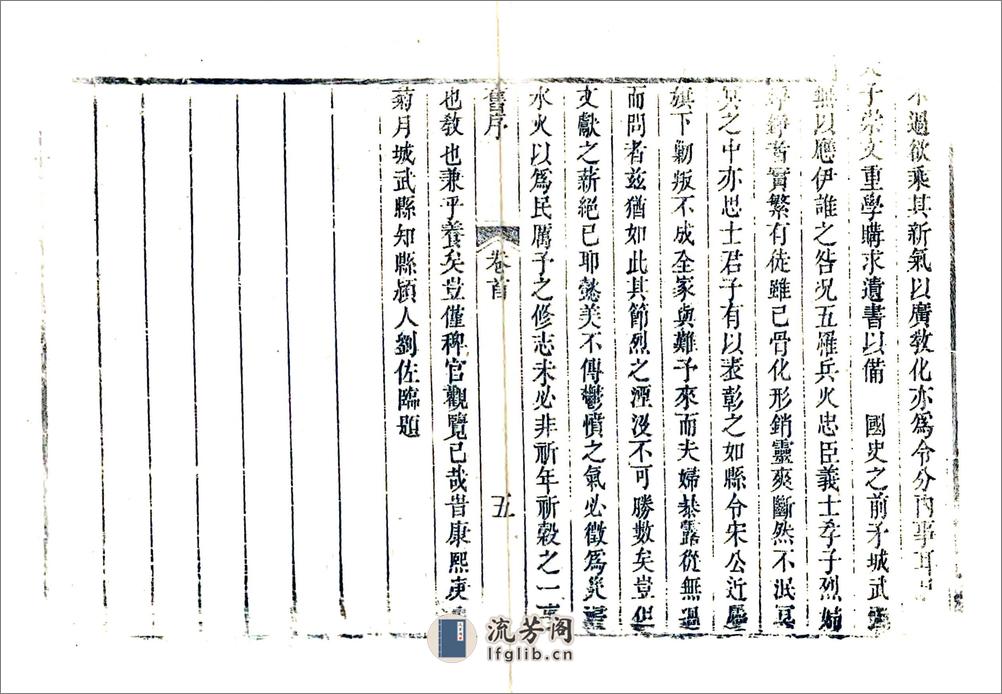 不過欲乘其新氣以廣敎化亦爲令分內事耳
天子崇文重學購求遺書以備 國史之前矛城武
無以應伊誰之咎况五罹兵火忠臣義士孝子烈婦
錚錚者實繁有徒雖已骨化形銷靈爽斷然不泯冥
冥之中亦思士君子有以表彰之如縣令宋公近屬
旗下勦叛不成全家與難予來而夫婦暴露從無過
而問者茲猶如此其節烈之湮没不可勝數矣豈但
文獻之薪絕已耶懿美不傳鬱憤之氣必徵爲災
水火以爲民厲予之修志未必非祈年祈穀之一事
舊序 卷首 五
也敎也兼乎養矣豈僅稗官觀覽已哉旹康熙庚
菊月城武縣知縣潁人劉佐臨題
流芳阁
lfglib.cn